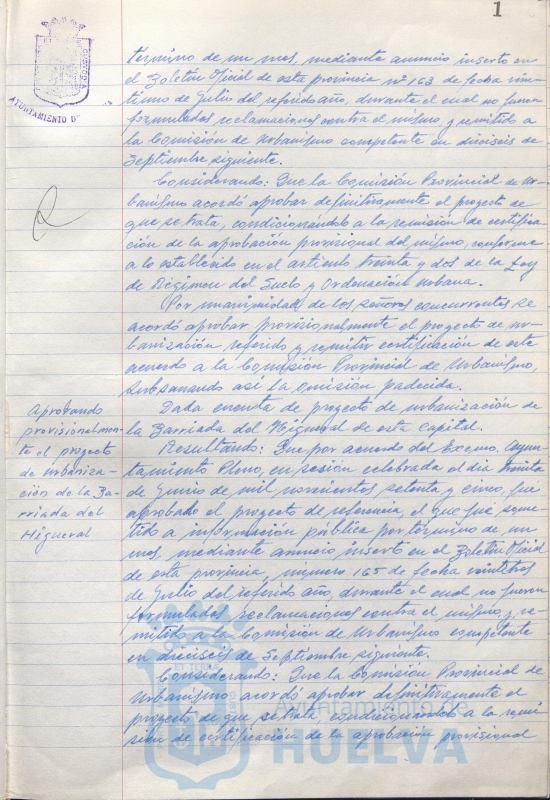 1
AYUNTAMIENTO DE
término de un mes, mediante anuncio inserto en
el Boletín Oficial de esta provincia nº 163 de fecha vein-
tiuno de Julio del referido año, durante el cual no fueron
formuladas reclamaciones contra el mismo y remitido a
la Comisión de Urbanismo competente en dieciseis de
Septiembre siguiente.
Considerando: Que la Comisión Provincial de Ur-
banismo acordó aprobar definitivamente el proyecto de
que se trata, condicionándolo a la remisión de certifica-
ción de la aprobación provisional del mismo, conforme
a lo establecido en el artículo treinta y dos de la Ley
de Régimen del Suelo y Ordenación Urbana.
Por unanimidad de los señores concurrentes se
acordó aprobar provisionalmente el proyecto de ur-
banización referido y remitir certificación de este
acuerdo a la Comisión Provincial de Urbanismo,
subsanando así la omisión padecida.
Aprobando
provisionalmen-
te el proyecto
de urbaniza-
ción de la Ba-
rriada del
Higueral
Dada cuenta de proyecto de urbanización de
la Barriada del Higueral de esta capital.
Resultando: Que por acuerdo del Excmo. Ayun-
tamiento Pleno, en sesión celebrada el día treinta
de Junio de mil novecientos setenta y cinco, fué
aprobado el proyecto de referencia, el que fué some-
tido a información pública por término de un
mes, mediante anuncio inserto en el Boletín Oficial
de esta provincia, número 165 de fecha veintitres
de Julio del referido año, durante el cual no fueron
formuladas reclamaciones contra el mismo, y re-
mitido a la Comisión de Urbanismo competente
en dieciseis de Septiembre siguiente.
Considerando: Que la Comisión Provincial de
Urbanismo acordó aprobar definitivamente el
proyecto de que se trata, condicionándolo a la remi-
sión de certificación de la aprobación provisional
Ayuntamiento de
HUELVA